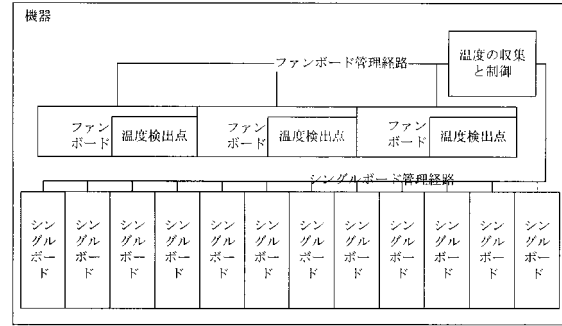 機器
温度の収集
と制御
ファンボード管理経路
ファン
ボード
温度検出点
ファン
ボード
温度検出点
ファン
ボード
温度検出点
シングルボード管理経路
シングルボード
シングルボード
シングルボード
シングルボード
シングルボード
シングルボード
シングルボード
シングルボード
シングルボード
シングルボード
シングルボード
シングルボード